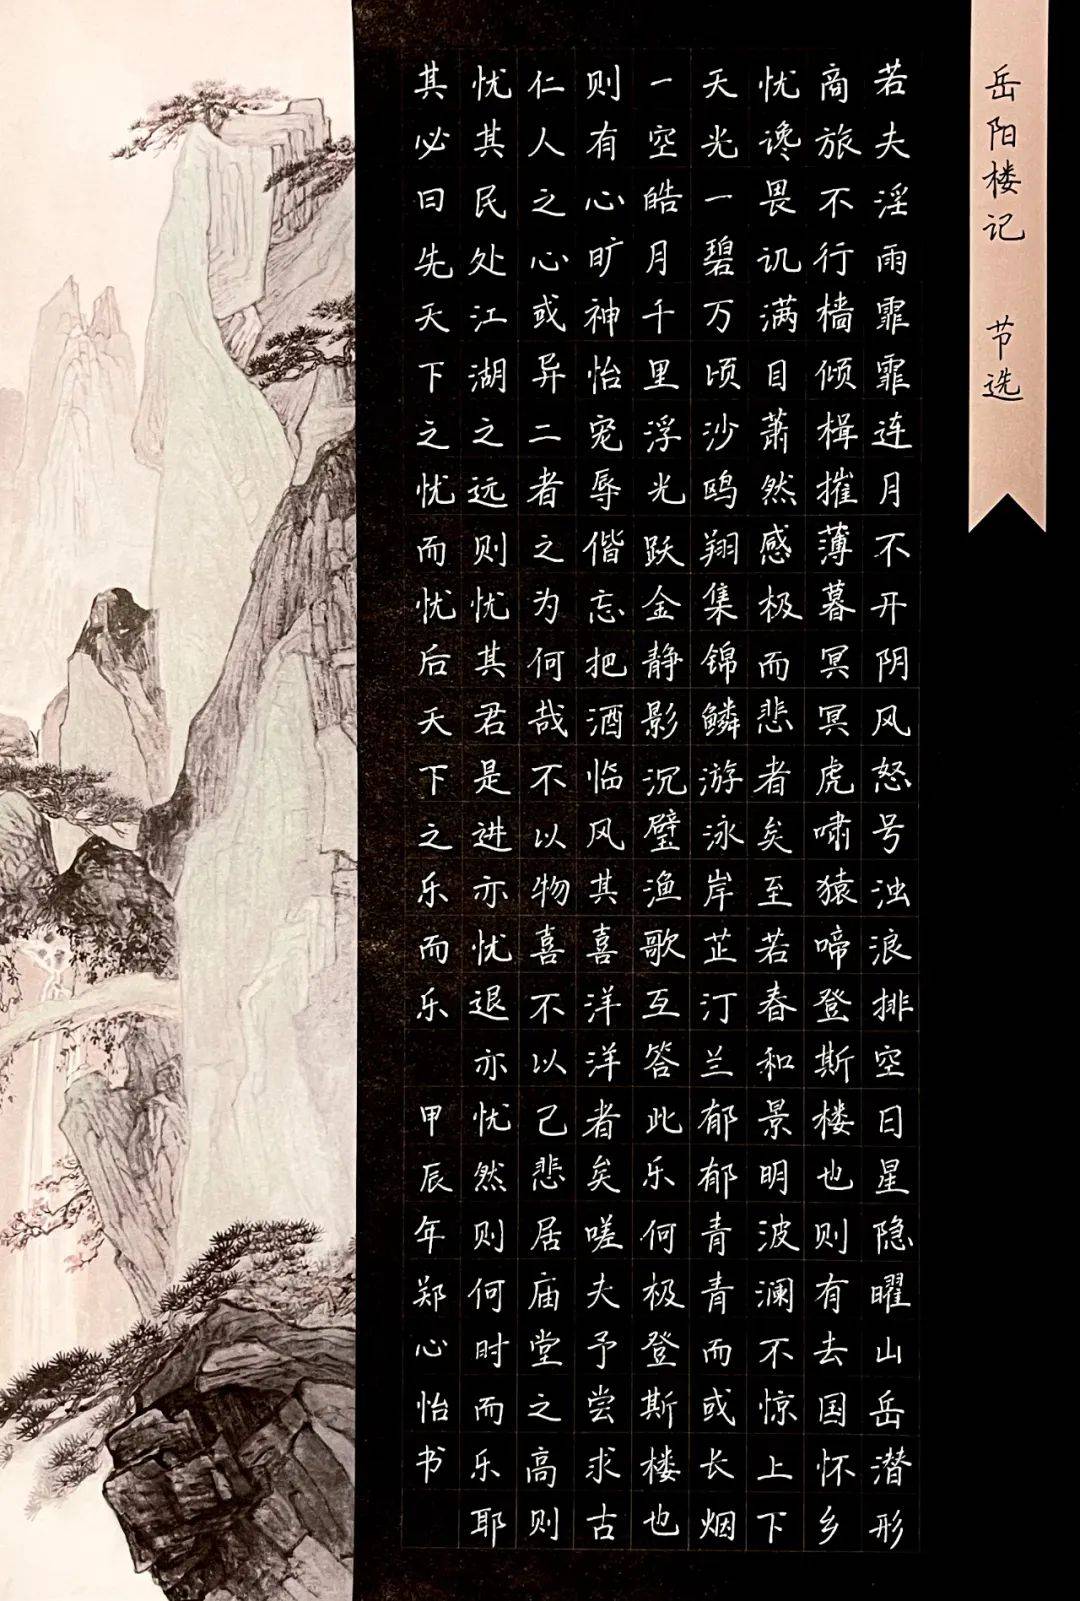 岳阳楼记 节选
若夫淫雨霏霏连月不开阴风怒号浊浪排空日星隐曜山岳潜形
商旅不行樯倾楫摧薄暮冥冥虎啸猿啼登斯楼也则有去国怀乡
忧谗畏讥满目萧然感极而悲者矣至若春和景明波澜不惊上下
天光一碧万顷沙鸥翔集锦鳞游泳岸芷汀兰郁郁青青而或长烟
一空皓月千里浮光跃金静影沉璧渔歌互答此乐何极登斯楼也
则有心旷神怡宠辱偕忘把酒临风其喜洋洋者矣嗟夫予尝求古
仁人之心或异二者之为何哉不以物喜不以己悲居庙堂之高则
忧其民处江湖之远则忧其君是进亦忧退亦忧然则何时而乐耶
其必曰先天下之忧而忧后天下之乐而乐 甲辰年郑心怡书